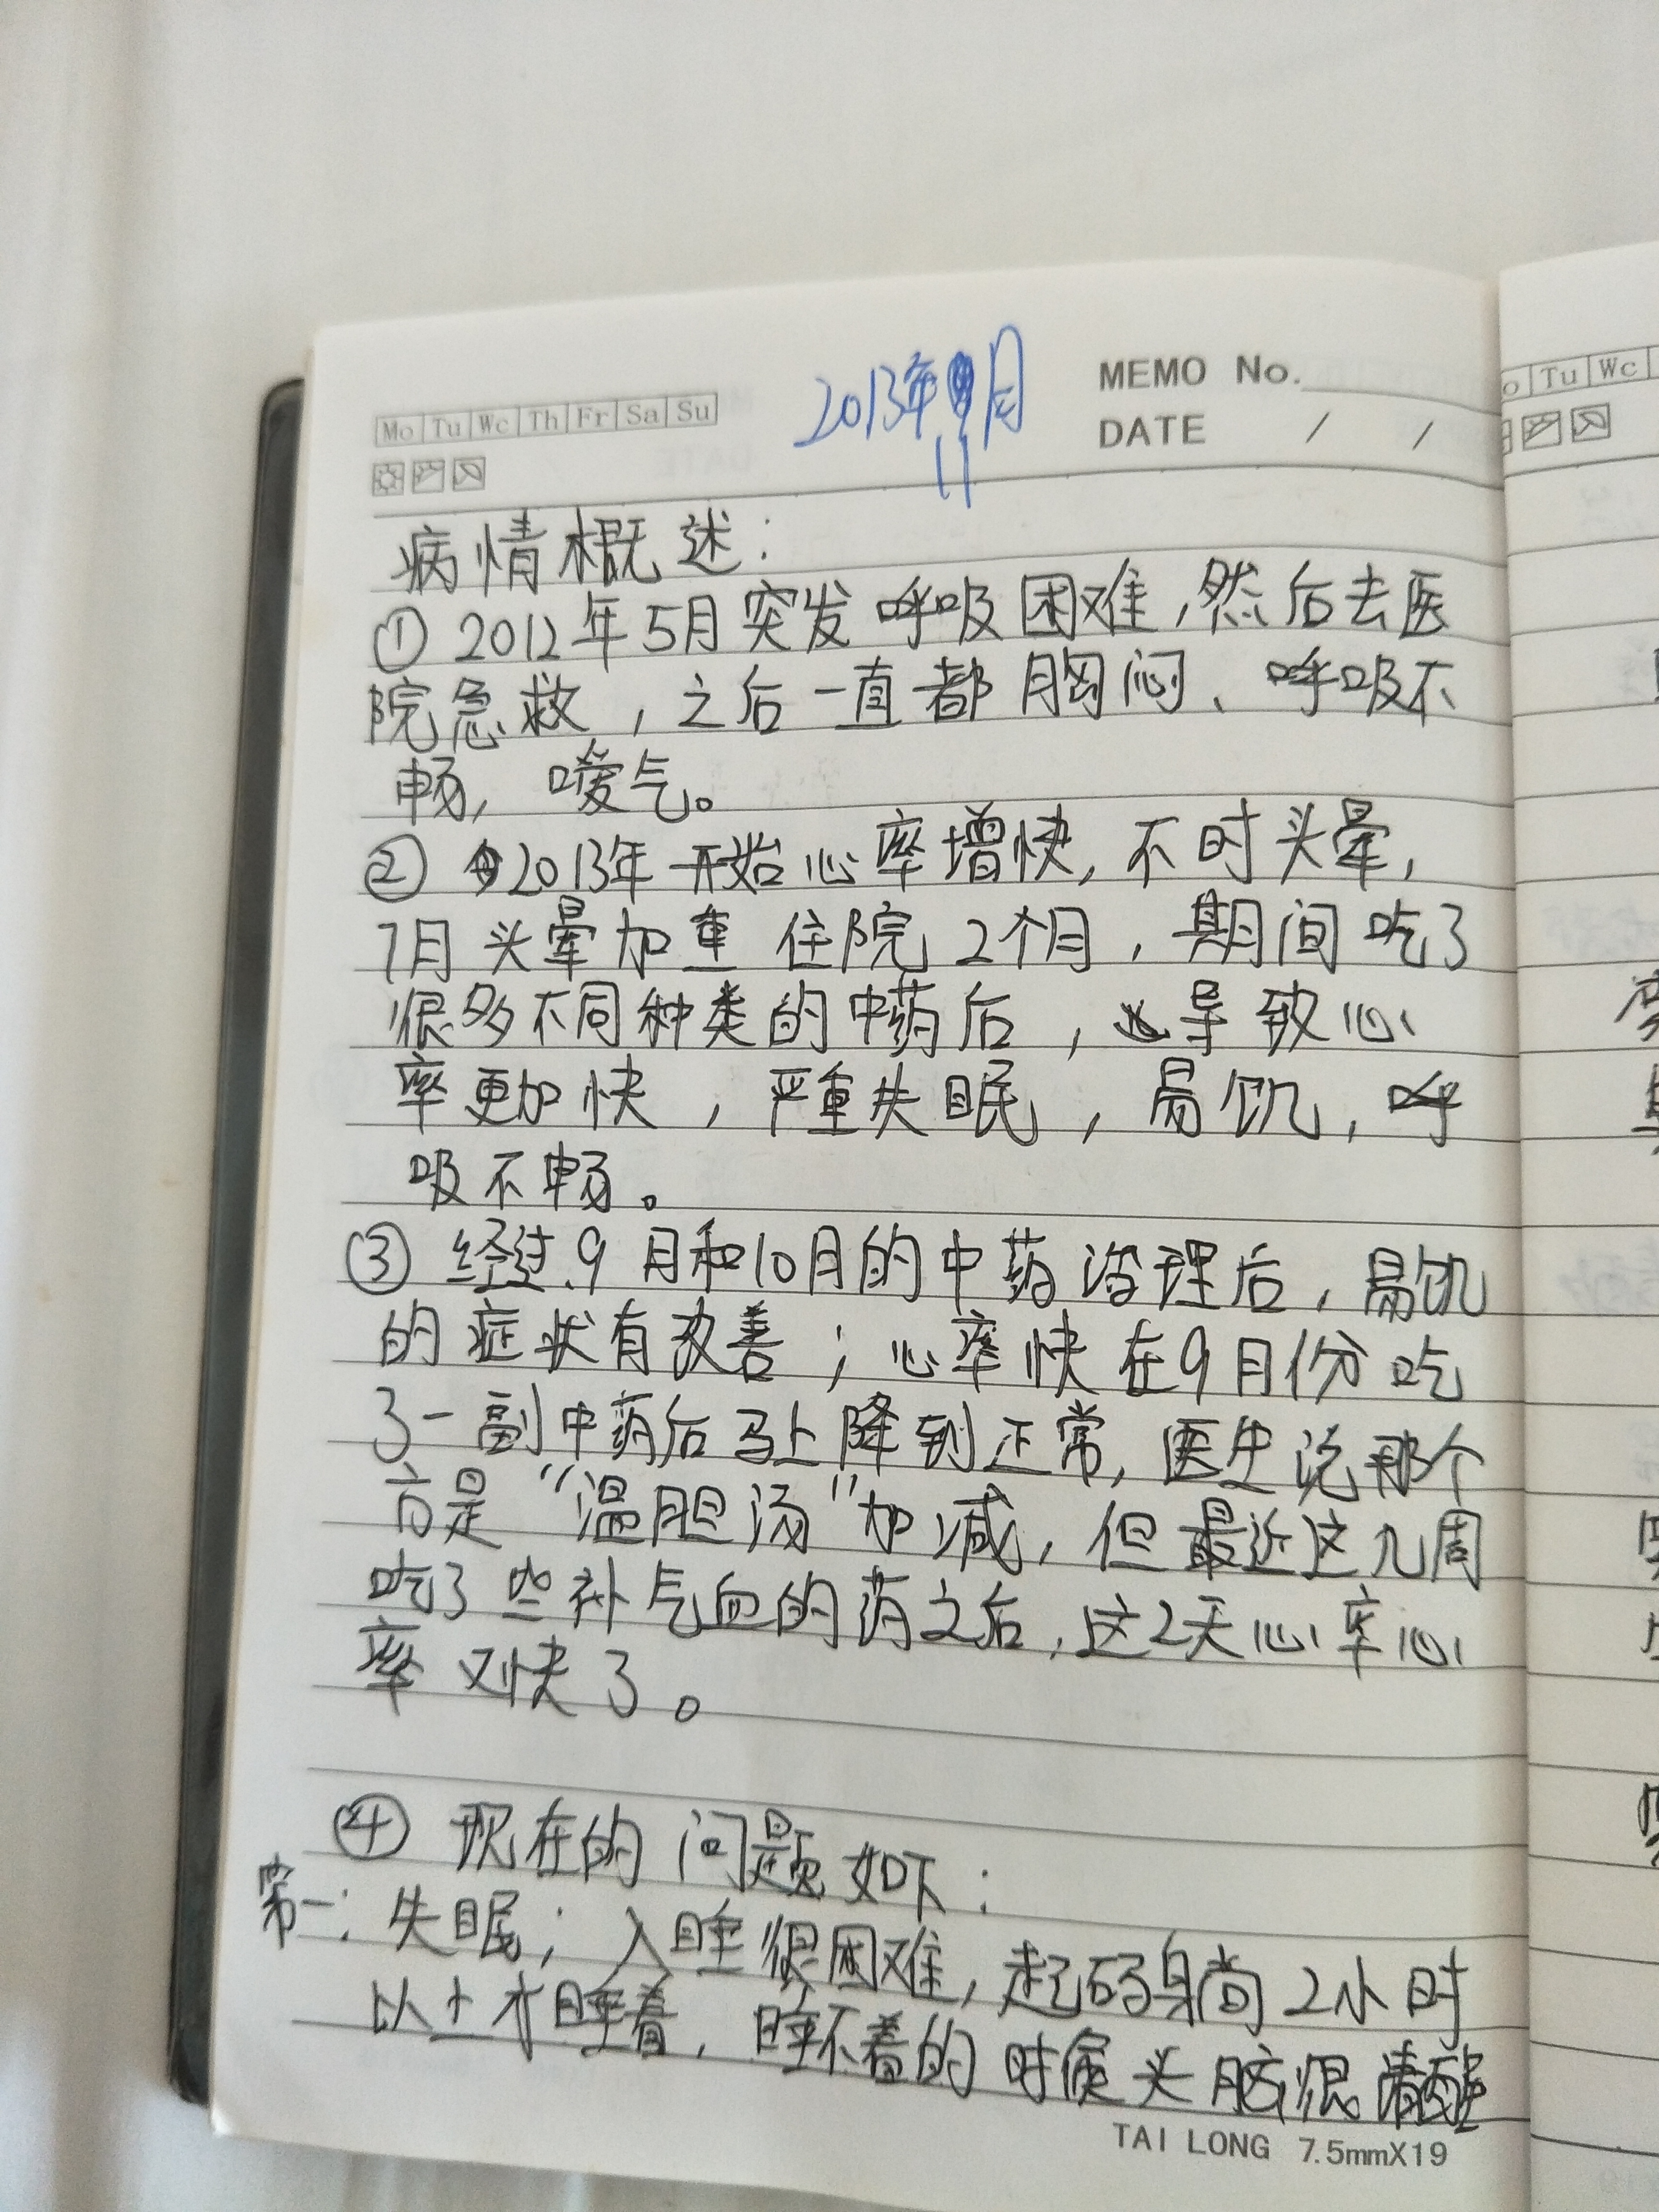 Mo Tu Wc Th Fr Sa Su
2013年11月
MEMO No.
DATE / /
病情概述：
① 2012年5月突发呼吸困难，然后去医
院急救，之后一直都胸闷、呼吸不
畅，嗳气。
② 2013年开始心率增快，不时头晕，
7月头晕加重住院2个月，期间吃了
很多不同种类的中药后，导致心
率更加快，严重失眠，易饥，呼
吸不畅。
③ 经过9月和10月的中药治理后，易饥
的症状有改善；心率快在9月份吃
了一副中药后马上降到正常，医生说那个
方是“温胆汤”加减，但最近这几周
吃了些补气血的药之后，这2天心率心
率又快了。
④ 现在的问题如下：
第一：失眠；入睡很困难，起码身尚2小时
以上才睡着，睡不着的时候头脑很清醒
TAI LONG 7.5mmX19
o Tu Wc